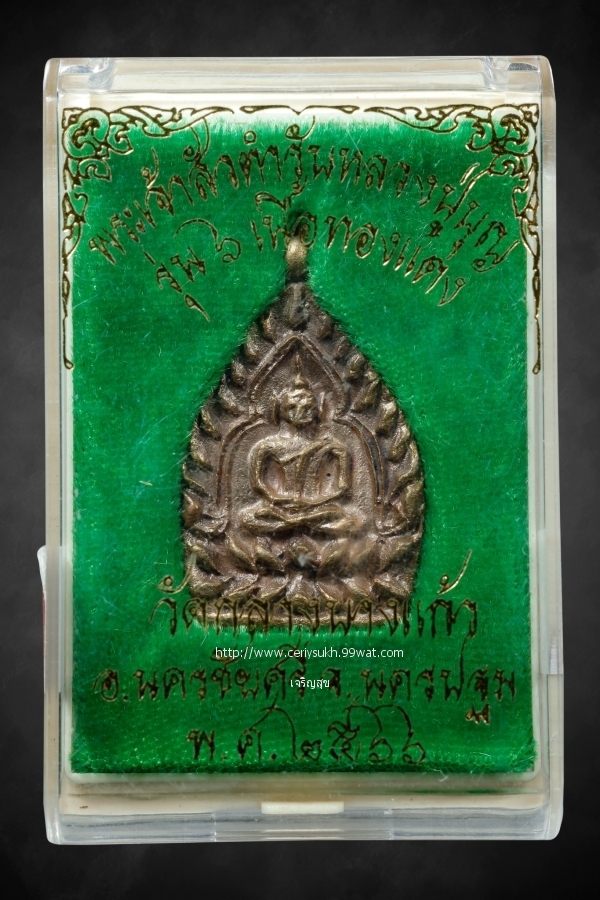 พระเจ้าสัวตำรับหลวงปู่บุญ
รุ่น ๖ เนื้อทองแดง
วัดกลางบางแก้ว
http://www.ceriysukh.99wat.com
อ.นครชัยศรี จ.นครปฐม
เจริญสุข
พ.ศ.๒๕๖๖